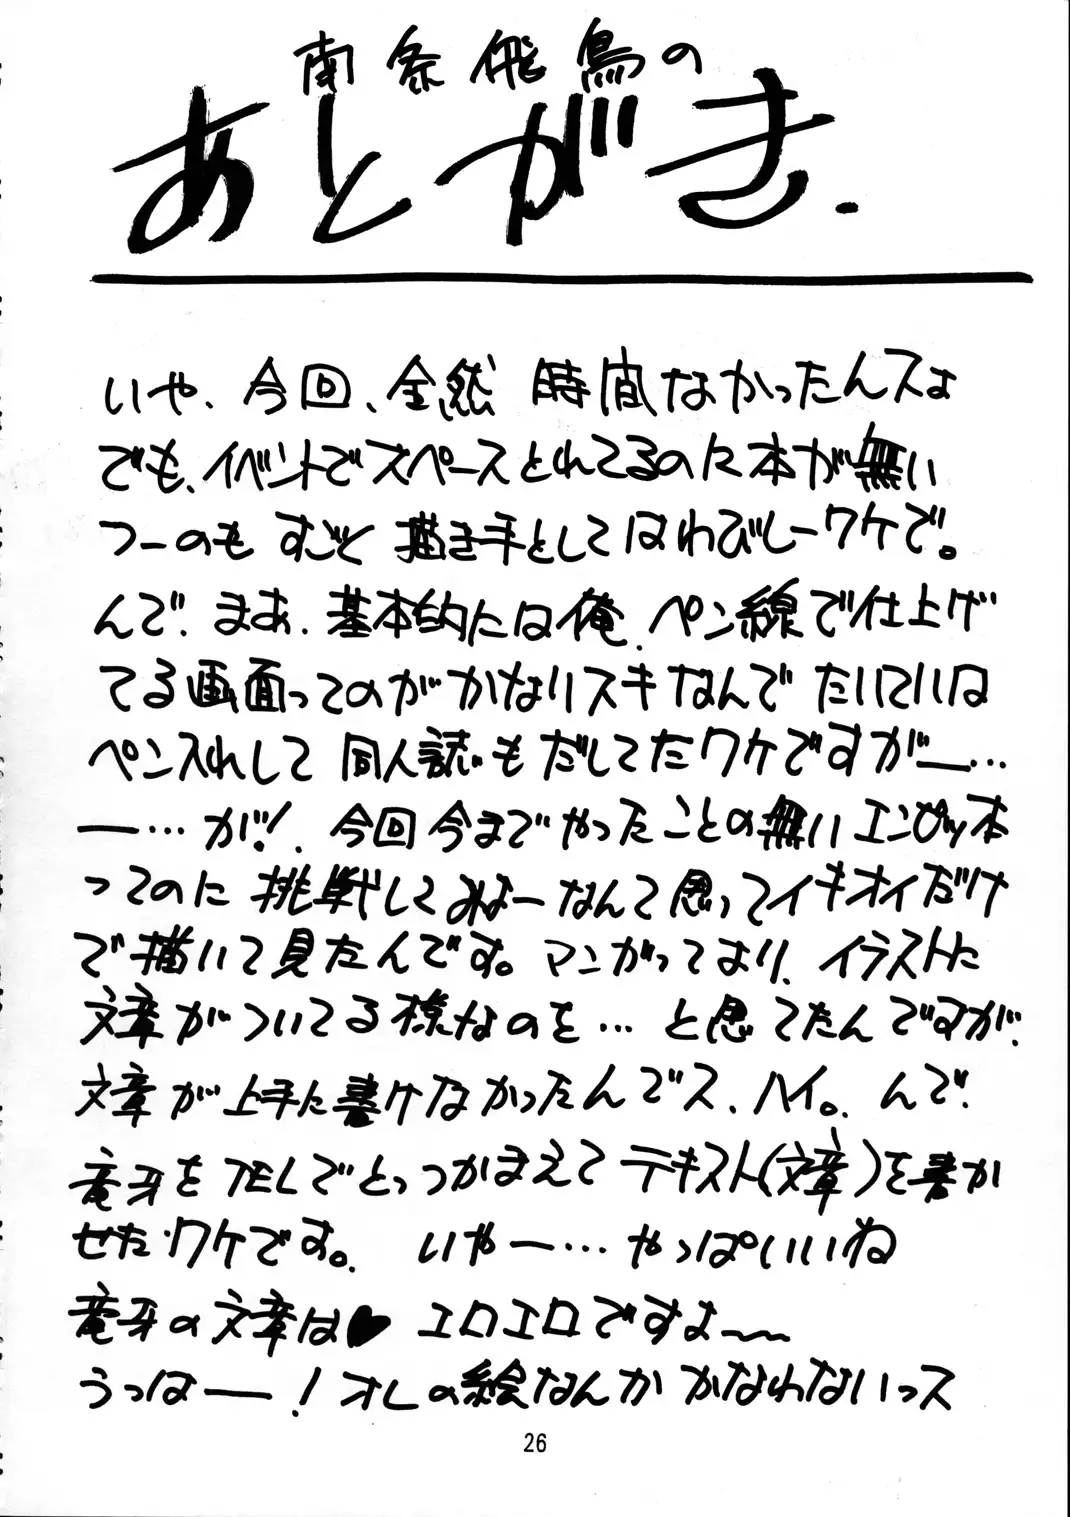 南条飛鳥の
あとがき.
いや、今回、全然 時間なかったんスよ
でも、イベントでスペースとれてるのに本が無い
つーのも すごく 描き手としてはわびしーワケで。
んで、まあ、基本的には俺、ペン線で仕上げ
てる画面ってのがかなりスキなんで たいていは
ペン入れして 同人誌もだしてたワケですがー…
ー…が!、今回今までやったことの無いエンピツ本
ってのに 挑戦してみよーなんて思ってイキオイだけ
で描いて見たんです。マンガってより、イラストに
文章がついてる様なのを…と思てたんですが、
文章が上手に書けなかったんでス、ハイ。んで、
竜牙をTELでとっつかまえてテキスト(文章)を書か
せたワケです。 いやー…やっぱいいね
竜牙の文章は♥ エロエロですよ~~
うっはー!オレの絵なんか かなわないっス
26